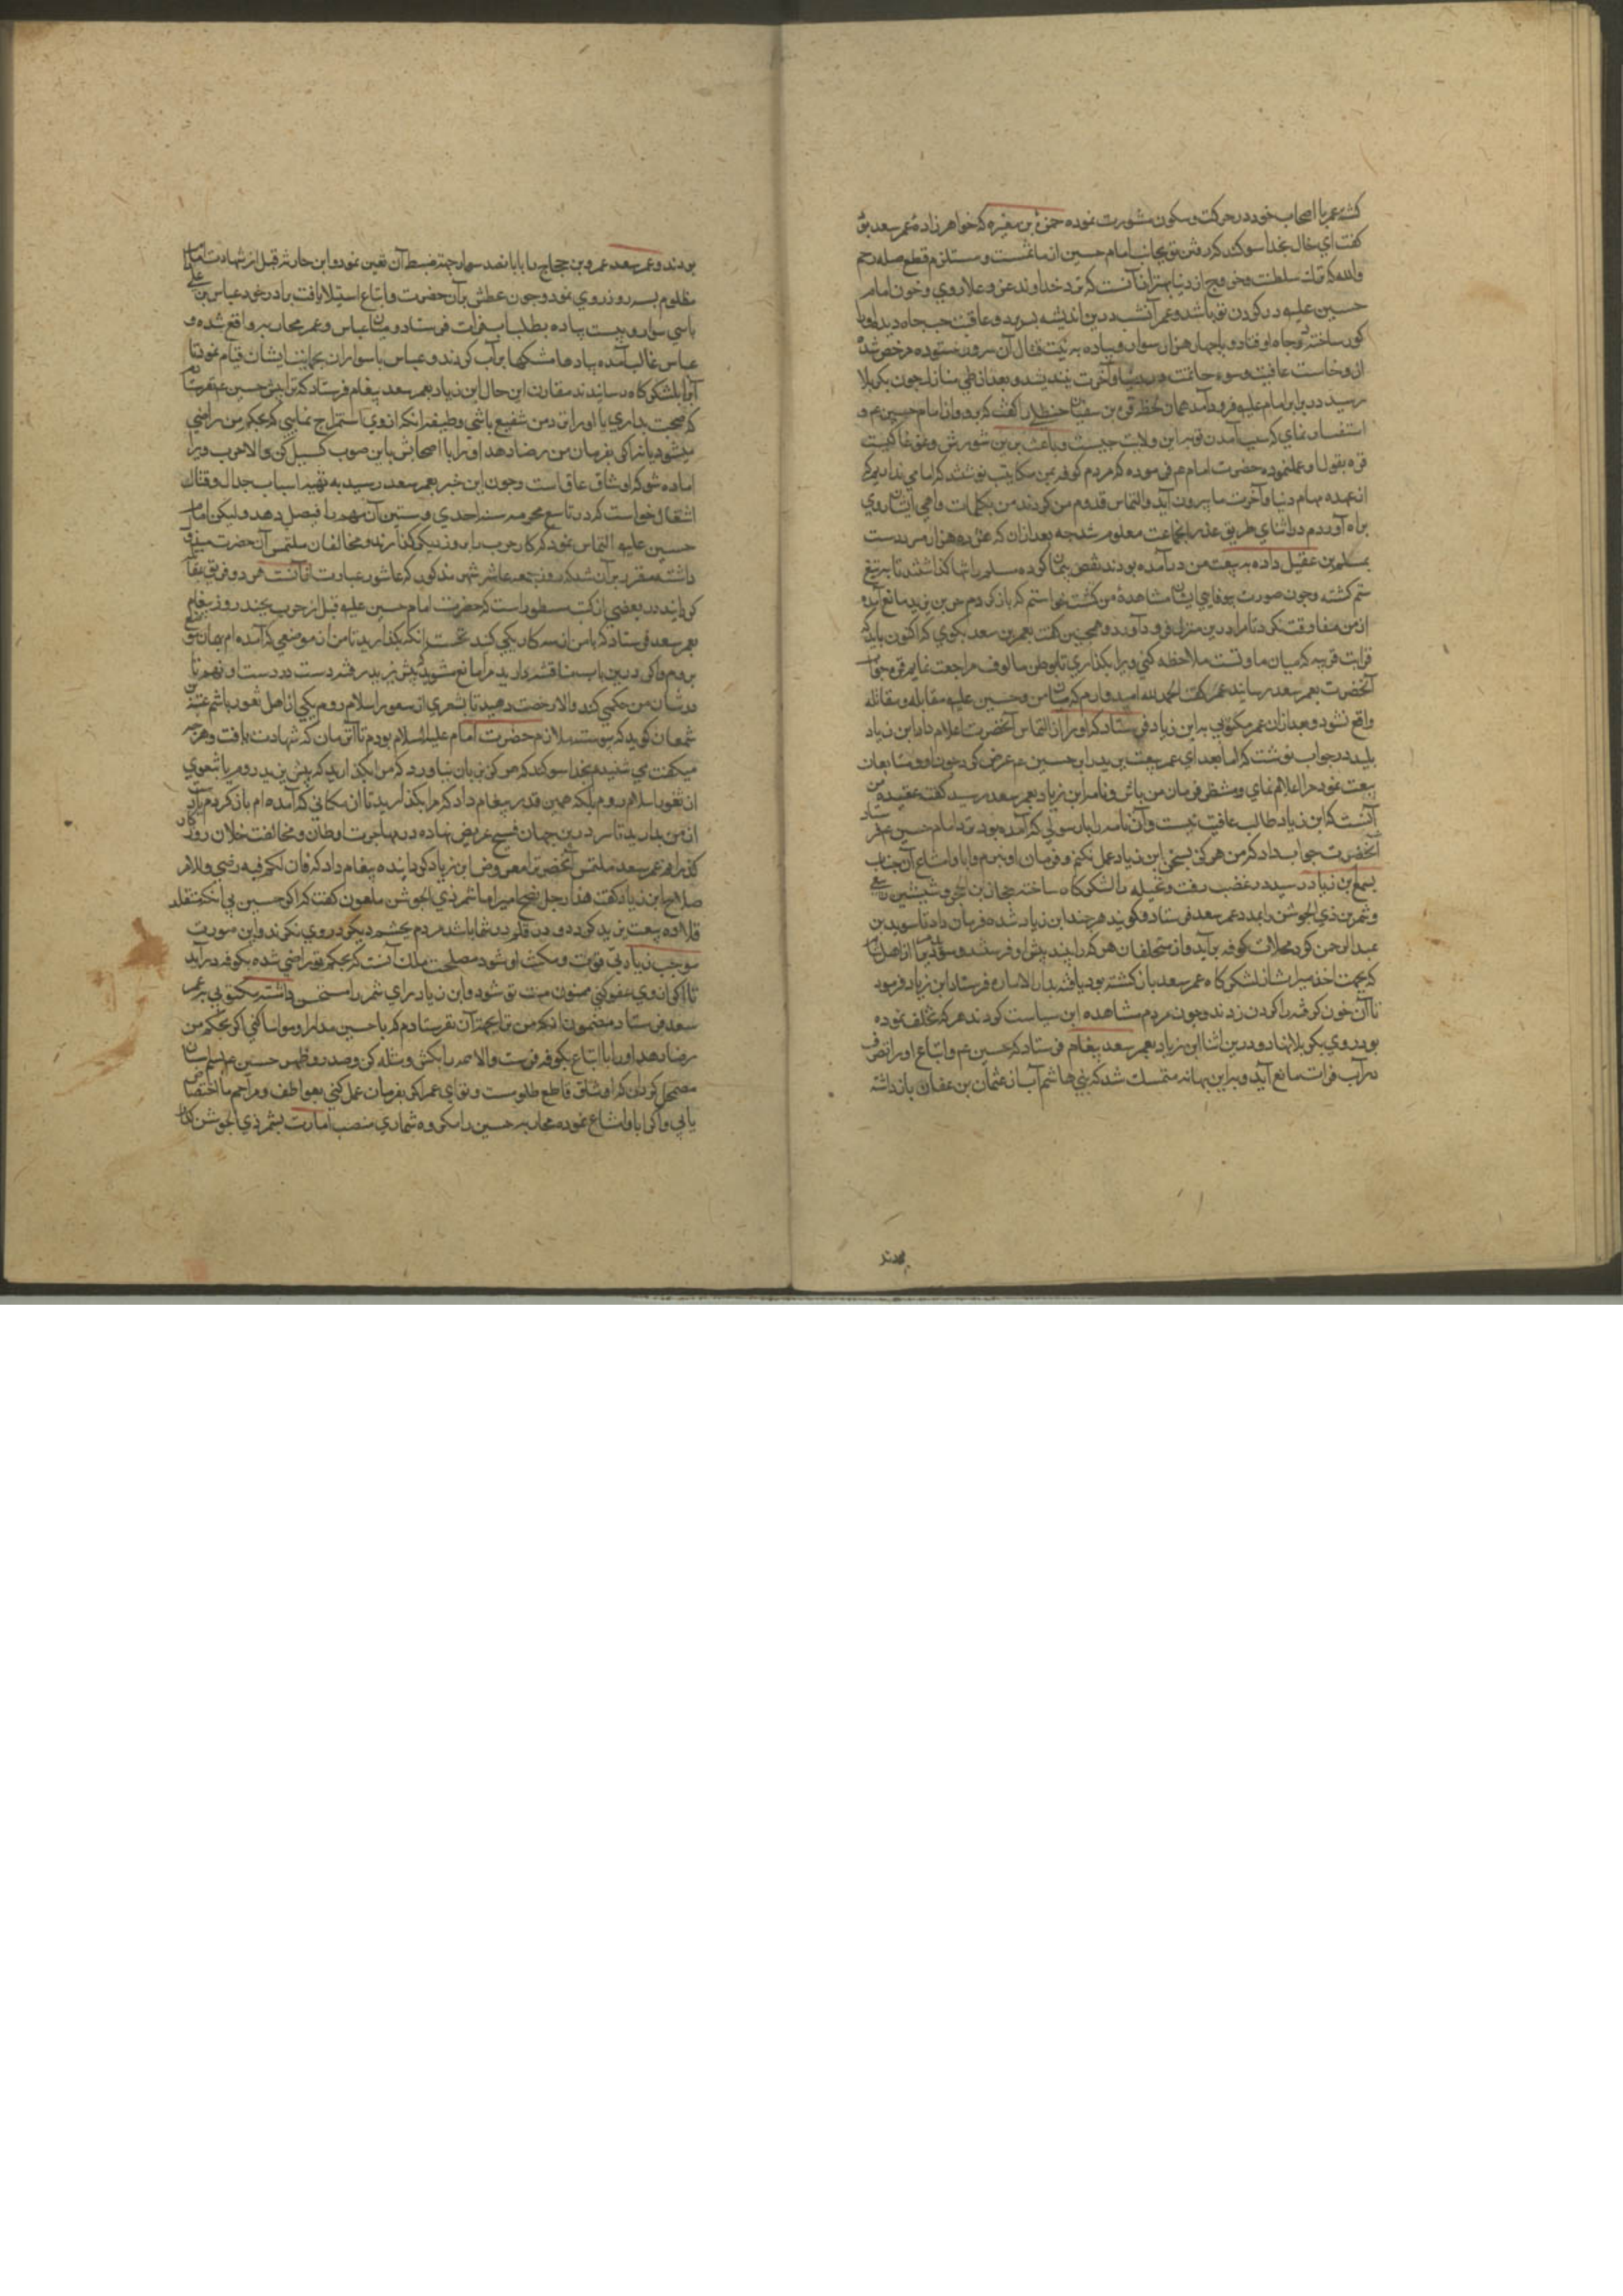 کشته عمر با اصحاب خود در حرکت و سکون مشورت نموده حمزة بن مغیره که خواهرزاده عمر سعد بود
گفت ای خال بخدا سوکند که رفتن تو بجانب امام حسین از ماثمست و مستلزم قطع صله رحم
والله که ترک سلطنت و خروج از دنیا بهتر از آنست که نزد خداوند عز و علا روی و خون امام
حسین علیه در کردن تو باشد و عمر آنشب درین اندیشه بسر برد و عاقبت حب جاه دیده او را
کور ساخته در چاه افتاد و با چهار هزار سوار و پیاده به نیت قتال آن سرور نستوده مرخص شده
از وخامت عاقبت و سوء خاتمت در دنیا و آخرت نیندیشید و بعد از طی منازل چون بکربلا
رسید در برابر امام علیه فرود آمد همان لحظه قرة بن سفیان حنظلی را کفت که برو و از امام حسین عم
استفسار نمای که سبب آمدن تو به این ولایت چیست و باعث برین شورش و غوغا کیست
قره بقول او عمل نموده حضرت امام عم فرموده که مردم کوفه بمن مکاتیب نوشتند که امامی نداریم که
از عهده مهام دنیا و آخرت ما بیرون آید و التماس قدوم من کردند من بکلمات واهی ایشان روی
براه آوردم و در اثنای طریق غدر آنجماعت معلوم شد چه بعد از آن که هژده هزار مرد دست
بمسلم بن عقیل داده به بیعت من درآمده بودند نقض پیمان کرده مسلم را تنها کذاشتند تا به تیغ
ستم کشته و چون صورت بیوفایی ایشان مشاهده من کشت خواستم که باز کردم حر بن یزید مانع آمده
از من مفارقت نکرد تا مرا درین منزل فرود آورد و همچنین کفت بعمر بن سعد بکوی که اکنون باید که
قرابت قریبه که میان ما و تست ملاحظه کنی و مرا بکذاری تا بوطن مالوف مراجعت نمایم قره جواب
آنحضرت بعمر سعد رسانید عمر کفت الحمد لله امیدوارم که میان من و حسین علیه مقابله و مقاتله
واقع نشود و بعد از آن عمر مکتوبی به ابن زیاد فرستاد که او را از التماس آنحضرت اعلام داد ابن زیاد
پلید در جواب نوشت که اما بعد ای عمر بیعت یزید را بر حسین عم عرض کن چون او و متابعان
بیعت نمود مرا اعلام نمای و منتظر فرمان من باش و نامه ابن زیاد بعمر سعد رسید کفت عقیده من
آنست که ابن زیاد طالب عافیت نیست و آن نامه را با رسولی که آمده بود نزد امام حسین عم فرستاد
آنحضرت جواب داد که من هرکز بسخن ابن زیاد عمل نکنم و فرمان او نبرم و ابا و امتناع آنجناب
بسمع ابن زیاد رسیده در غضب رفت و نخیله را لشکرکاه ساخته حجار بن ابجر و شبث بن ربعی
و شمر بن ذی الجوشن را بمدد عمر سعد فرستاد و کویند هر چند ابن زیاد شده فرمان داد تا سوید بن
عبد الرحمن کرد محلات کوفه برآید و از متخلفان هر که را بیند پیش او فرستد و سوید مردی را از اهل شام
که بجهت اخذ میراث از لشکرکاه عمر سعد باز کشته بود یافته بدار الاماره فرستاد ابن زیاد فرمود
تا آن خون کرفته را کردن زدند و چون مردم مشاهده این سیاست کردند هر که تخلف نموده
بود روی بکربلا نهاد و درین اثنا ابن زیاد بعمر سعد پیغام فرستاد که حسین عم و اتباع او را از تصرف
در آب فرات مانع آید و براین بهانه متمسک شد که بنی هاشم آب از عثمان بن عفان باز داشته
بودند
بودند و عمر سعد عمرو بن حجاج را با پانصد سوار جهة ضبط آن تعین نمود و این حادثه قبل از شهادت امام
مظلوم بسه روز روی نمود و چون عطش بر آن حضرت و اتباع استیلا یافت برادر خود عباس بن علی
با سی سوار و بیست پیاده بطلب آب فرات فرستاد و میان عباس و عمر محاربه واقع شده و
عباس غالب آمده پیادها مشکها پر آب کردند و عباس با سواران بحمایت ایشان قیام نمود تا
آب را بلشکرکاه رسانیدند مقارن این حال ابن زیاد بعمر سعد پیغام فرستاد که ترا پیش حسین عم نفرستادم
که صحبت بداری یا او را نزد من شفیع باشی وظیفه آنکه از وی استمزاج نمایی که بحکم من راضی
میشود یا نه اکر بفرمان من رضا دهد او را با اصحابش باین صوب کسیل کن و الا حرب ویرا
آماده شو که او شاق عاق است و چون این خبر بعمر سعد رسید به تهیه اسباب جدال و قتال
اشتغال خواست که در تاسع محرم سنه احدی و ستین آن مهم را فیصل دهد ولیکن امام
حسین علیه التماس نمود که کار حرب را بروز دیکر کذارند و مخالفان ملتمس آن حضرت مبذول
داشته مقرر بر آن شد که روز جمعه عاشر شهر مذکور که عاشورا عبارت از آنست هر دو فریق
کرمانند در بعضی از کتب مسطور است که حضرت امام حسین علیه قبل از حرب بچند روز پیغام
بعمر سعد فرستاد که با من از سه کار یکی کنید نخست آنکه بکذارید تا من از موضعی که آمده ام بهمان موضع
بروم و اکر درین باب مناقشه دارید مرا مانع مشوید که پیش یزید رفته دست در دست او نهم تا
در شان من حکمی کند و الا رخصت دهید تا بثغری از ثغور اسلام روم یکی از اهل ثغور باشم عقبة بن
سمعان کوید که پیوسته ملازم حضرت امام علیه السلام بودم تا آنزمان که شهادت یافت و هر چه
میکفت می شنیدم بخدا سوکند که هرکز بزبان نیاورد که مرا بکذارید که پیش یزید روم یا بثغری
از ثغور اسلام روم بلکه همین قدر پیغام داد که مرا بکذارید تا از مکانی که آمده ام باز کردم یا دست
از من بدارید تا سر درین جهان فسیح عریض نهاده در مهاجرت اوطان و مخالفت خلان روزکار
کذرانم عمر سعد ملتمس آنحضرت را معروض ابن زیاد کردانیده پیغام داد که فان لکم فیه رضی و للامة
صلاح ابن زیاد کفت هذا رجل نصح امیره اما شمر ذی الجوشن ملعون کفت که اکر حسین بی آنکه متقلد
قلاده بیعت یزید کردد و درین قلم رو در بقا باشد مردم بچشم دیکر در وی نکرند و این صورت
موجب زیادتی قوت و مکنت او شود مصلحت ملک آنست که بحکم تو راضی شده بکوفه درآید
تا اکر از وی عفو کنی ممنون منت تو شود و ابن زیاد رای شمر را مستحسن داشته مکتوبی بعمر
سعد فرستاد مضمون آنکه من ترا بجهة آن نفرستادم که با حسین مدارا و مواسا کنی اکر بحکم من
رضا دهد او را با اتباع بکوفه فرست و الا همه را بکش و مثله کن و صدر و ظهر حسین عم بسم اسبان
مضمحل کردان که او شاق قاطع ظلومست و تو ای عمر اکر بفرمان عمل کنی بعواطف و مراحم ما اختصاص
یابی و اکر ابا و امتناع نموده محاربه حسین را مکروه شماری منصب امارت بشمر ذی الجوشن کذار